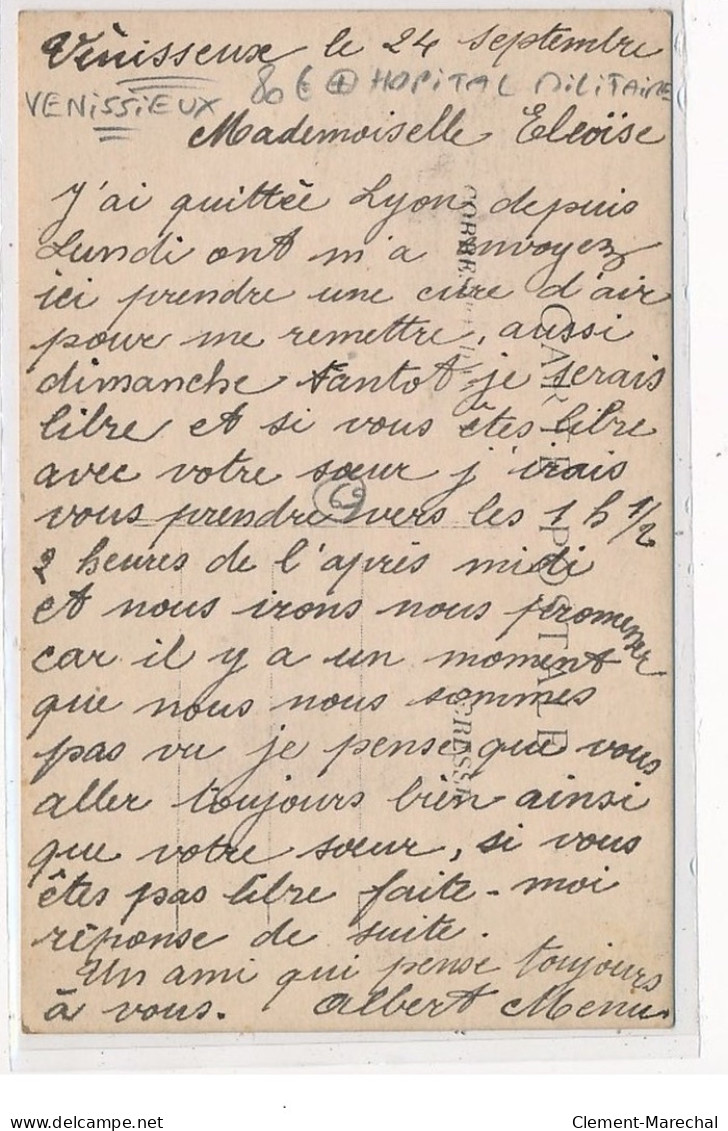 Vénisseux le 24 septembre
VENiSSiEUX 80 € + HOPiTAL MiLiTAiRE
Mademoiselle Eleoïse
J'ai quittée Lyon depuis
Lundi ont m'a envoyez
ici prendre une cure d'air
pour me remettre, aussi
dimanche tantot je serais
libre et si vous êtes libre
avec votre sœur j'irais
vous prendre vers les 1 h 1/2
2 heures de l'après midi
et nous irons nous promener
car il y a un moment
que nous nous sommes
pas vu je pense que vous
aller toujours bien ainsi
que votre sœur, si vous
êtes pas libre faite-moi
réponse de suite.
Un ami qui pense toujours
à vous. Albert Menu
CARTE POSTALE
Clement-Marechal